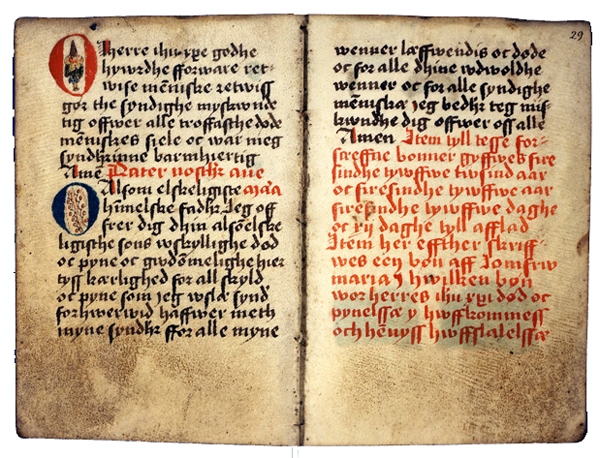 O herre ihu xpe godhe
hywrdhe fforware ret-
wise mēniske retwiss
gør the syndighe myskwnde
tig offwer alle troffasthe døde
mēniskes siele oc war meg
syndhrinne barmhiertig
Amē Pater noster aue
O Alsom elskeligiste
hīmelske fadhr Jeg off
frer dig dhin alsoelske
ligisthe søns wskyllighe død
oc pyne oc gwdōmelighe hier
tyss kærlighed for all skyld
oc pyne som jeg wslæ synd
forhwerwid haffwer meth
myne syndhr ffor alle myne
29
wenner læffwendis oc døde
oc for alle dhine wdwoldhe
wenner oc for alle syndighe
mēniskæ jeg bedhr teg mis-
kwndhe dig offwer oss alle
Amen Item tyll tesse for-
screffne bønner gyffwes fire
sindhe tywffwe twsind aar
oc firesindhe tywffwe aar
firesindhe tywffwe daghe
oc xij daghe tyll afflad
Item her effther skriff-
wes een bøn aff Jomfrw
maria j hwilken bøn
wor herres ihu xpi død oc
pynelssæ y hwffkommess
och hēnyss hwffstalelssæ